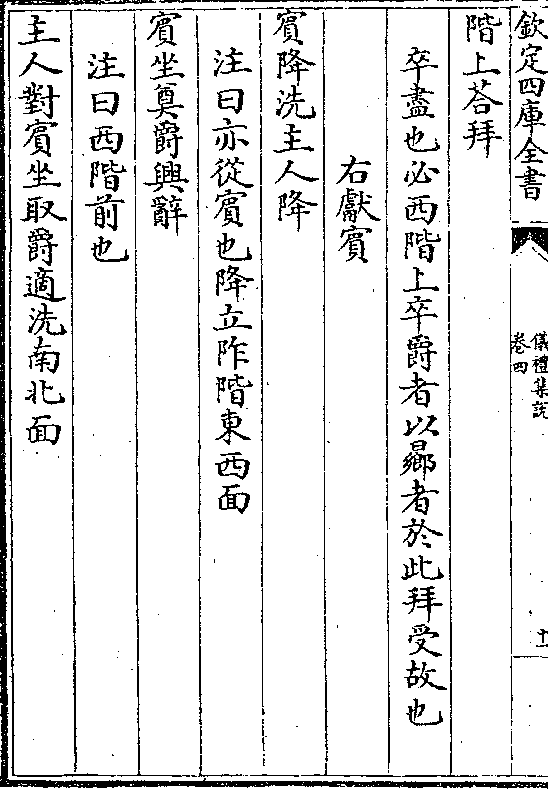 欽定四庫全書
儀禮集說
卷四
十一
階上荅拜
卒盡也必西階上卒爵者以曏者於此拜受故也
右獻賓
賓降洗主人降
注曰亦從賓也降立阼階東西面
賓坐奠爵興辭
注曰西階前也
主人對賓坐取爵適洗南北面